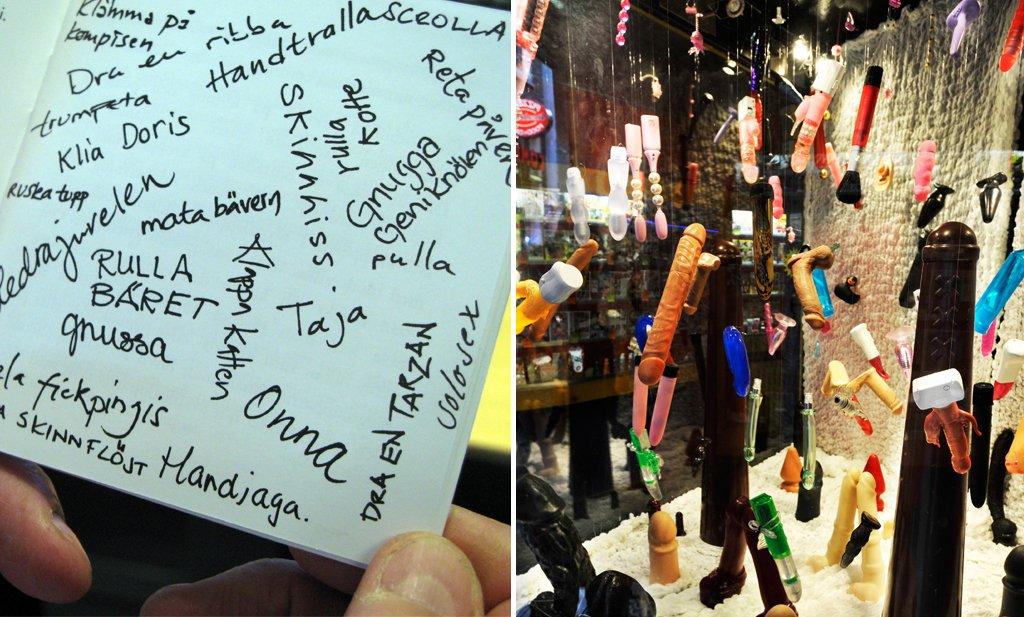 Klämma på
kompisen
Dra en ribba
HandtrallaSCROLLA
trumpeta
Klia Doris
Ruska tupp
mata bävern
RULLA
BÄRET
gnussa
SKIVVISSI
rulla
kotte
Reta päver
Gnugga
Geniknölen
pulla
Klappa katten
Taja
Onna
DRA EN TARZAN
solosex
fickpingis
SKINNFLÖJT
Handjaga.